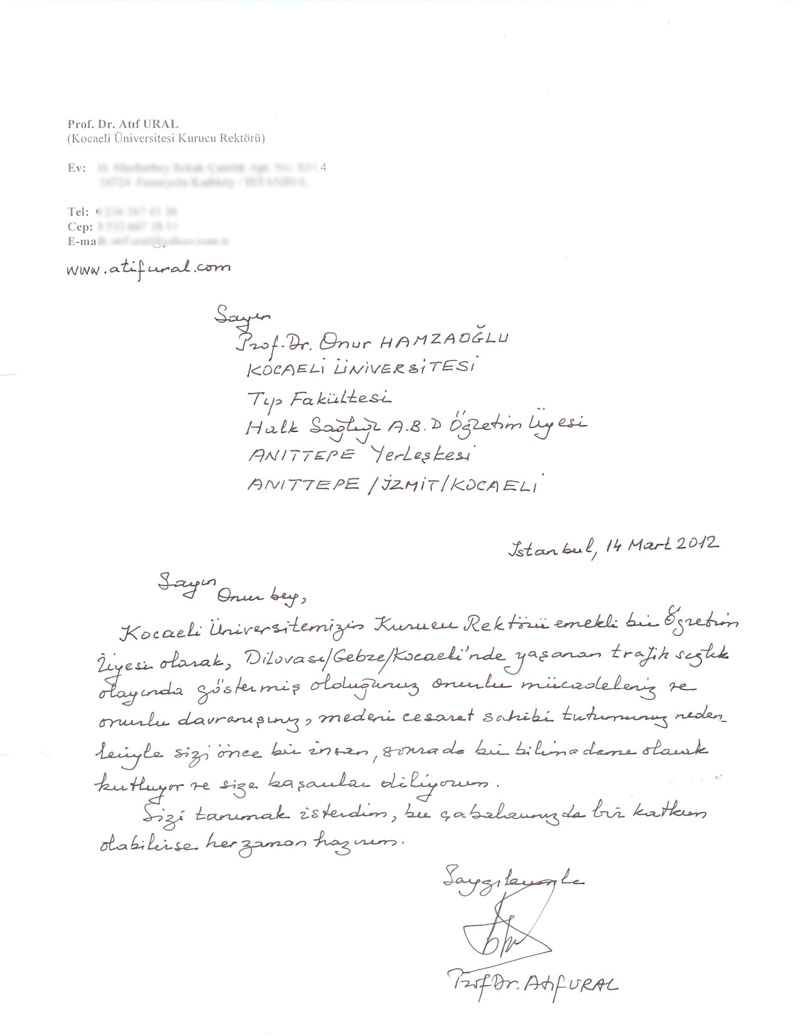 Prof. Dr. Atıf URAL
(Kocaeli Üniversitesi Kurucu Rektörü)
Ev: 4
Tel:
Cep:
E-ma
www.atifural.com
Sayın
Prof. Dr. Onur HAMZAOĞLU
KOCAELİ ÜNİVERSİTESİ
Tıp Fakültesi
Halk Sağlığı A.B.D Öğretim Üyesi
ANITTEPE Yerleşkesi
ANITTEPE /İZMİT/KOCAELİ
İstanbul, 14 Mart 2012
Sayın
Onur bey,
Kocaeli Üniversitemizin Kurucu Rektörü emekli bir Öğretim
Üyesi olarak, Dilovası/Gebze/Kocaeli'nde yaşanan trajik sağlık
olayında göstermiş olduğunuz onurlu mücadeleniz ve
onurlu davranışınız, medeni cesaret sahibi tutumunuz neden
leriyle sizi önce bir insan, sonrada bir bilim adamı olarak
kutluyor ve size başarılar diliyorum.
Sizi tanımak isterdim, bu çabalarınızda bir katkım
olabilirse her zaman hazırım.
Saygılarımla
Prof Dr. Atıf URAL